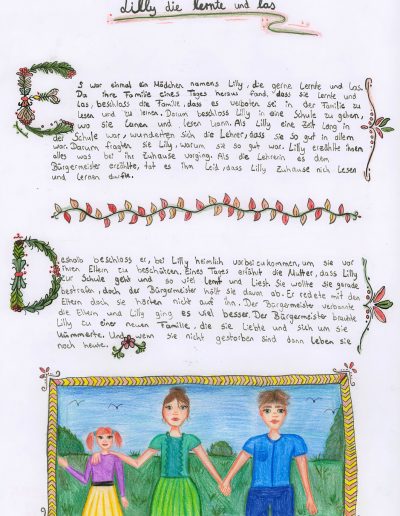 Lilly die lernte und las
Es war einmal ein Mädchen namens Lilly, die gerne Lernte und Las.
Da ihre Familie eines Tages heraus fand, dass sie Lernte und
Las, beschloss die Familie, dass es verboten sei in der Familie zu
Lesen und zu lernen. Darum beschloss Lilly in eine Schule zu gehen,
wo sie Lernen und lesen kann. Als Lilly eine Zeit Lang in
der Schule war, wunderten sich die Lehrer, dass sie so gut in allem
war. Darum fragten sie Lilly, warum sie so gut war. Lilly erzählte ihnen
alles was bei ihr Zuhause vorging. Als die Lehrerin es dem
Bürgermeister erzählte, tat es ihm Leid, dass Lilly Zuhause nich Lesen
und Lernen durfte.
Deshalb beschloss er, bei Lilly heimlich vorbeizukommen, um sie vor
ihren Eltern zu beschützen. Eines Tages erfährt die Mutter, dass Lilly
zur Schule geht und so viel Lernt und Liest. Sie wollte sie gerade
bestrafen, doch der Bürgermeister hielt sie davon ab. Er redete mit den
Eltern doch sie hörten nicht auf ihn. Der Bürgermeister verbannte
die Eltern und Lilly ging es viel besser. Der Bürgermeister brachte
Lilly zu einer neuen Familie, die sie Liebte und sich um sie
kümmerte. Und wenn sie nicht gestorben sind dann Leben sie
noch heute.